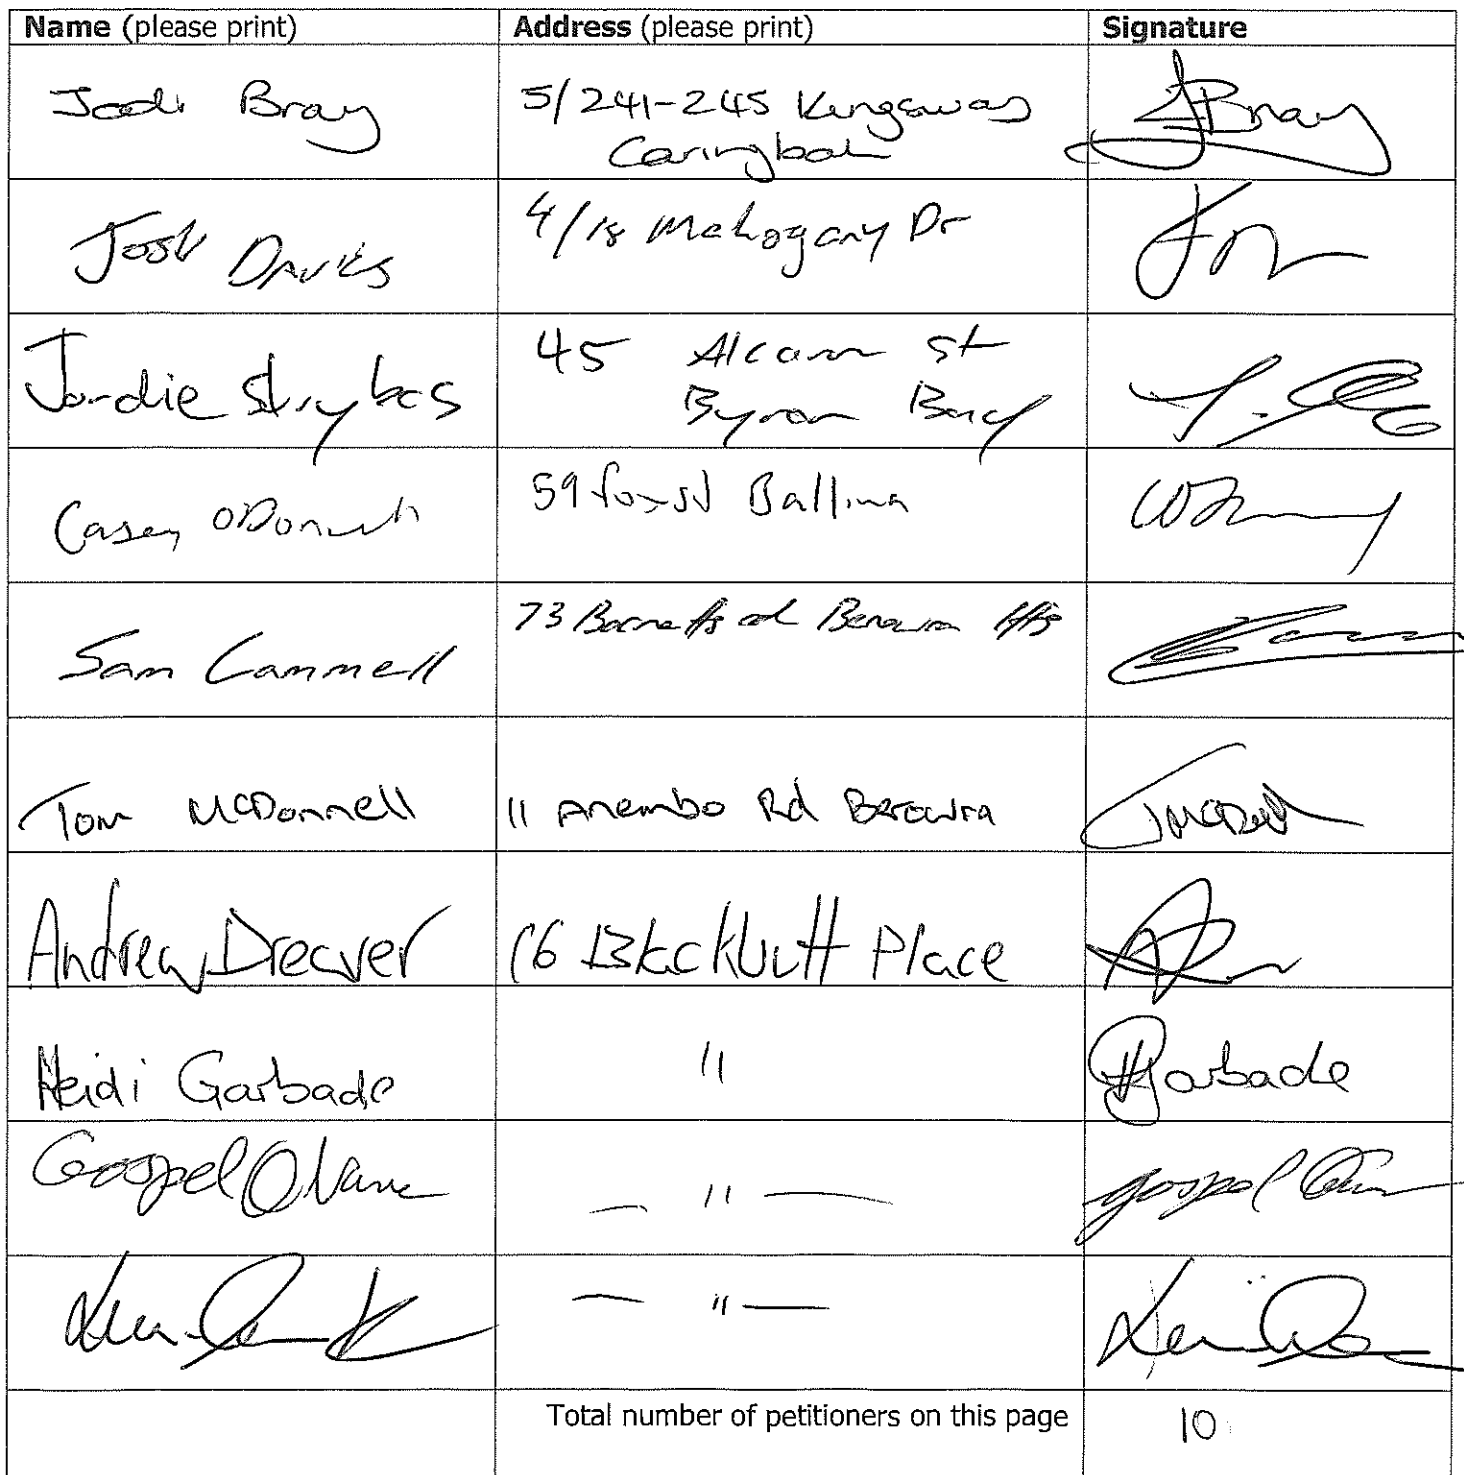 Name (please print) Address (please print) Signature
Jodi Bray 5/241-245 Kingsway JBray
Caringbah
Josh Davies 4/18 Mahogany Dr
Jordie Strybos 45 Alcorn St
Byron Bay
Casey 59 fox st Ballina
Sam Cammell 73 Barnetts rd Berowra Hts
Tom McDonnell 11 Anembo Rd Berowra
Andrew Dreaver 16 Blackbutt Place
Heidi Garbade " HGarbade
Gospel — " — gospel
— " —
Total number of petitioners on this page 10